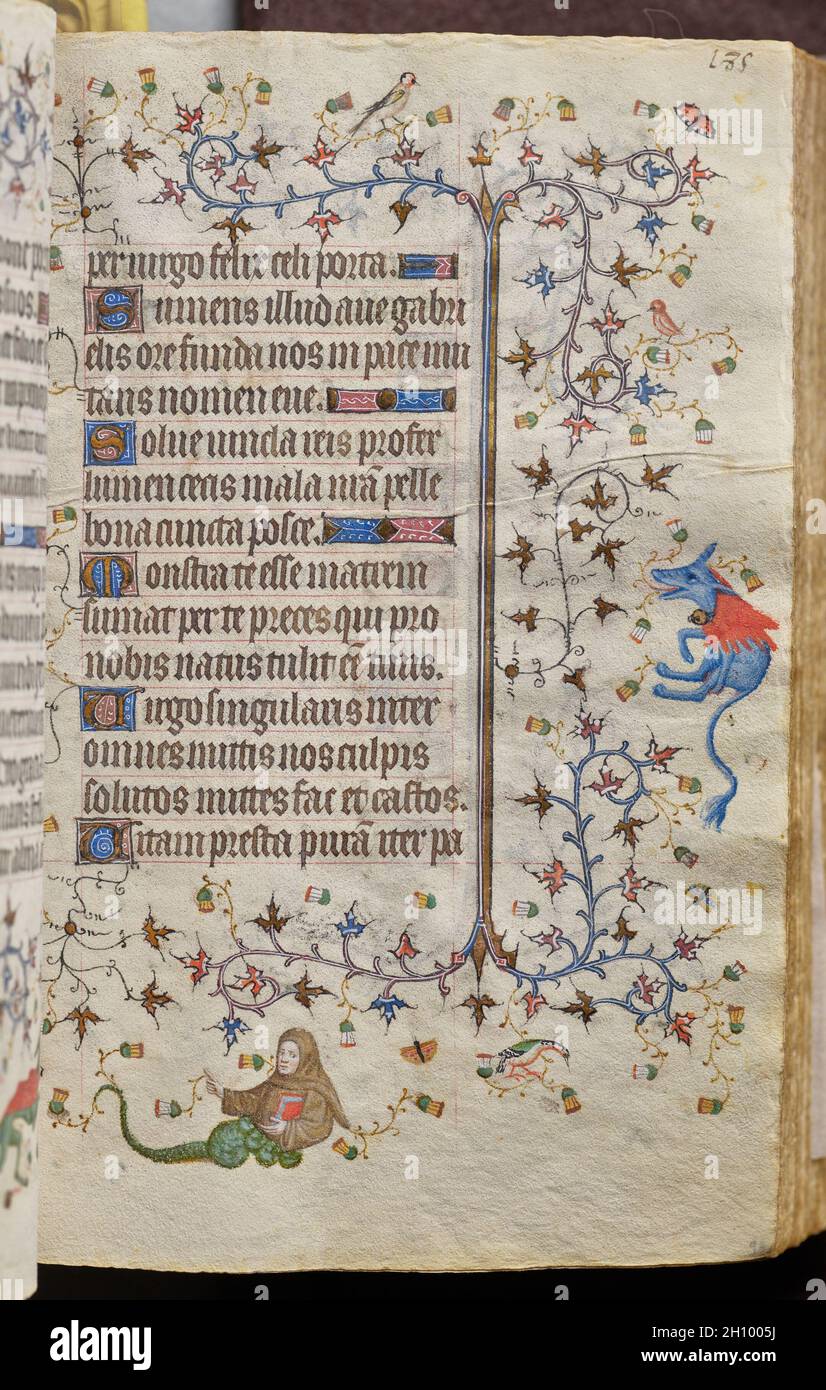 185
per uirgo felix celi porta.
Sumens illud aue gabri
elis ore funda nos in pace mu
tans nomen eue.
Solue uincla reis profer
lumen cecis mala nr̄a pelle
bona cuncta posce.
Monstra te esse matrem
sumat per te preces qui pro
nobis natus tulit eē tuus.
Uirgo singularis inter
omnes mittis nos culpis
solutos mittes fac et castos.
Uitam presta purā iter pa
alamy
Image ID: 2H1005J
www.alamy.com